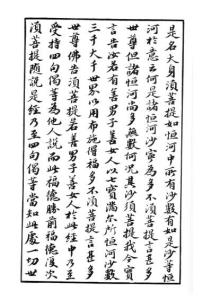 是名大身須菩提如恒河中所有沙數有如是沙等恒
河於意云何是諸恒河沙寧為多不須菩提言甚多
世尊但諸恒河尚多無數何況其沙須菩提我今實
言告汝若有善男子善女人以七寶滿爾所恒河沙數
三千大千世界以用布施得福多不須菩提言甚多
世尊佛告須菩提若善男子善女人於此經中乃至
受持四句偈等為他人說而此福德勝前福德復次
須菩提隨說是經乃至四句偈等當知此處一切世